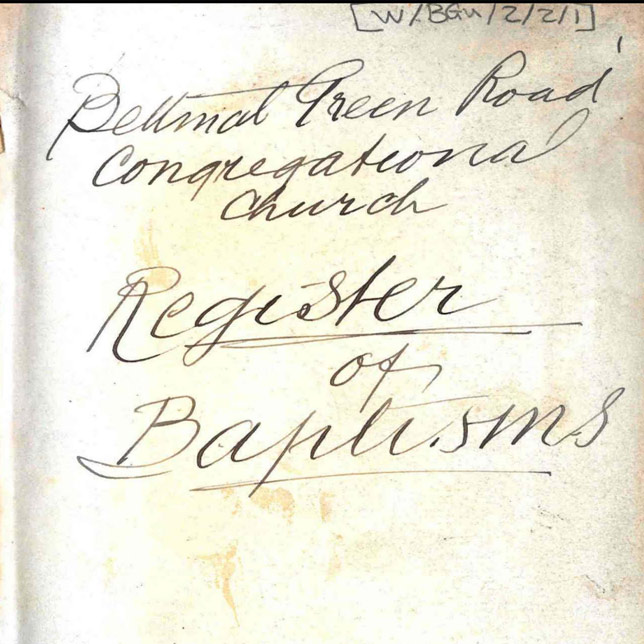 [W/BGU/2/2/1]
Bethnal Green Road
Congregational
Church
Register
of
Baptisms